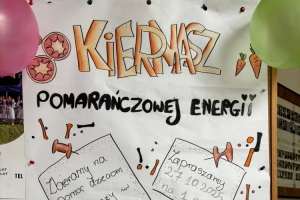 KiERMASZ
POMARAŃCZOWEJ ENERGii
Zbieramy na
pomoc dzieciom
Zapraszamy
27.10.202
TEL